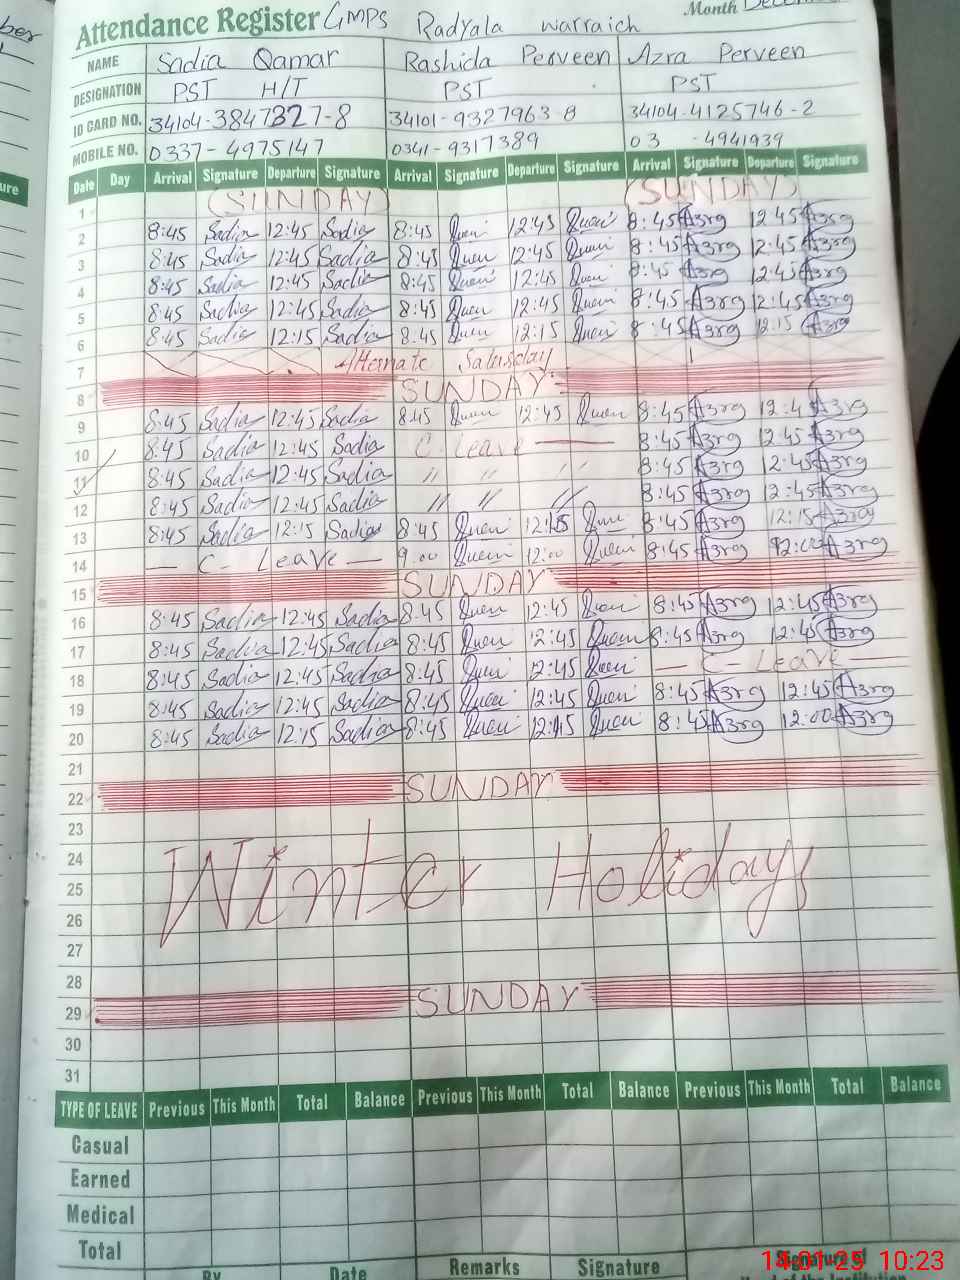 ber
Attendance Register GMPS Radyala warraich Month
NAME Sadia Qamar Rashida Perveen Azra Perveen
DESIGNATION PST H/T PST PST
ID CARD NO. 34104-3847327-8 34101-9327963-8 34104-4125746-2
MOBILE NO. 0337-4975147 0341-9317389 03 -4941939
ure Date Day Arrival Signature Departure Signature Arrival Signature Departure Signature Arrival Signature Departure Signature
1 (SUNDAY) (SUNDAY)
2 8:45 Sadia 12:45 Sadia 8:45 12:45 8:45 A3rg 12:45 A3rg
3 8:45 Sadia 12:45 Sadia 8:45 12:45 8:45 A3rg 12:45 A3rg
4 8:45 Sadia 12:45 Sadia 8:45 12:45 8:45 A3rg 12:45 A3rg
5 8:45 Sadia 12:45 Sadia 8:45 12:45 8:45 A3rg 12:45 A3rg
6 8:45 Sadia 12:15 Sadia 8:45 12:15 8:45 A3rg 12:15 A3rg
7 Alternate Saturday
8 SUNDAY
9 8:45 Sadia 12:45 Sadia 8:45 12:45 8:45 A3rg 12:4 A3rg
10 8:45 Sadia 12:45 Sadia C. Leave 8:45 A3rg 12:45 A3rg
11 8:45 Sadia 12:45 Sadia // // // 8:45 A3rg 12:45 A3rg
12 8:45 Sadia 12:45 Sadia // // // 8:45 A3rg 12:45 A3rg
13 8:45 Sadia 12:15 Sadia 8:45 12:15 8:45 A3rg 12:15 A3rg
14 — C- Leave — 9:00 12:00 8:45 A3rg 12:00 A3rg
15 SUNDAY
16 8:45 Sadia 12:45 Sadia 8:45 12:45 8:45 A3rg 12:45 A3rg
17 8:45 Sadia 12:45 Sadia 8:45 12:45 8:45 A3rg 12:45 A3rg
18 8:45 Sadia 12:45 Sadia 8:45 12:45 — C-Leave —
19 8:45 Sadia 12:45 Sadia 8:45 12:45 8:45 A3rg 12:45 A3rg
20 8:45 Sadia 12:15 Sadia 8:45 12:15 8:45 A3rg 12:00 A3rg
21
22 SUNDAY
23
24 Winter Holidays
25
26
27
28
29 SUNDAY
30
31
TYPE OF LEAVE Previous This Month Total Balance Previous This Month Total Balance Previous This Month Total Balance
Casual
Earned
Medical
Total
By Date Remarks Signature Signature of
14-01-25 10:23